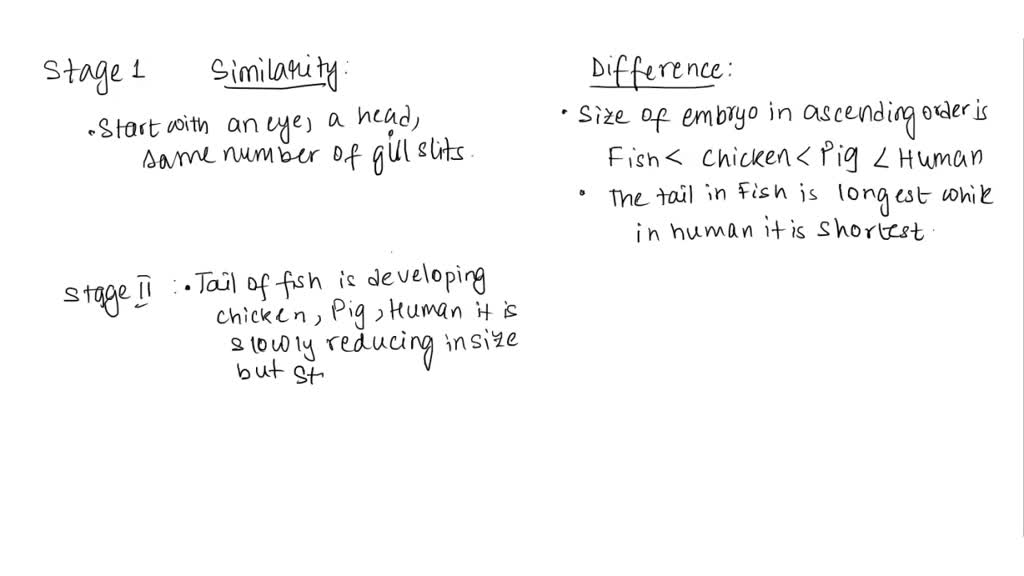 Stage 1 Similarity:
• Start with an eye, a head,
same number of gill slits.
Difference:
• Size of embryo in ascending order is
Fish < chicken < Pig < Human
• The tail in Fish is longest while
in human it is shortest.
Stage II : • Tail of fish is developing
chicken, Pig, Human it is
slowly reducing in size
but st